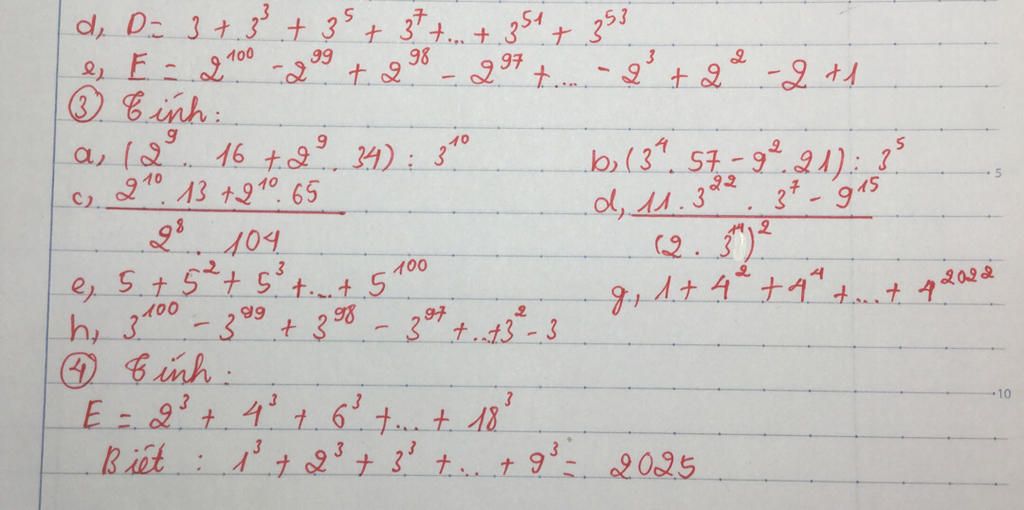 d, D = 3 + 3³ + 3⁵ + 3⁷ + ... + 3⁵¹ + 3⁵³
e, E = 2¹⁰⁰ - 2⁹⁹ + 2⁹⁸ - 2⁹⁷ + ... - 2³ + 2² - 2 + 1
③ Tính :
a, (2⁹ . 16 + 2⁹ . 34) : 3¹⁰ b, (3⁴ . 57 - 9² . 21) : 3⁵
c, (2¹⁰ . 13 + 2¹⁰ . 65) / (2⁸ . 104) d, (11 . 3²² . 3⁷ - 9¹⁵) / (2 . 3¹⁴)²
e, 5 + 5² + 5³ + ... + 5¹⁰⁰ g, 1 + 4² + 4⁴ + ... + 4²⁰²²
h, 3¹⁰⁰ - 3⁹⁹ + 3⁹⁸ - 3⁹⁷ + ... + 3² - 3
④ Tính :
E = 2³ + 4³ + 6³ + ... + 18³
Biết : 1³ + 2³ + 3³ + ... + 9³ = 2025
5
10